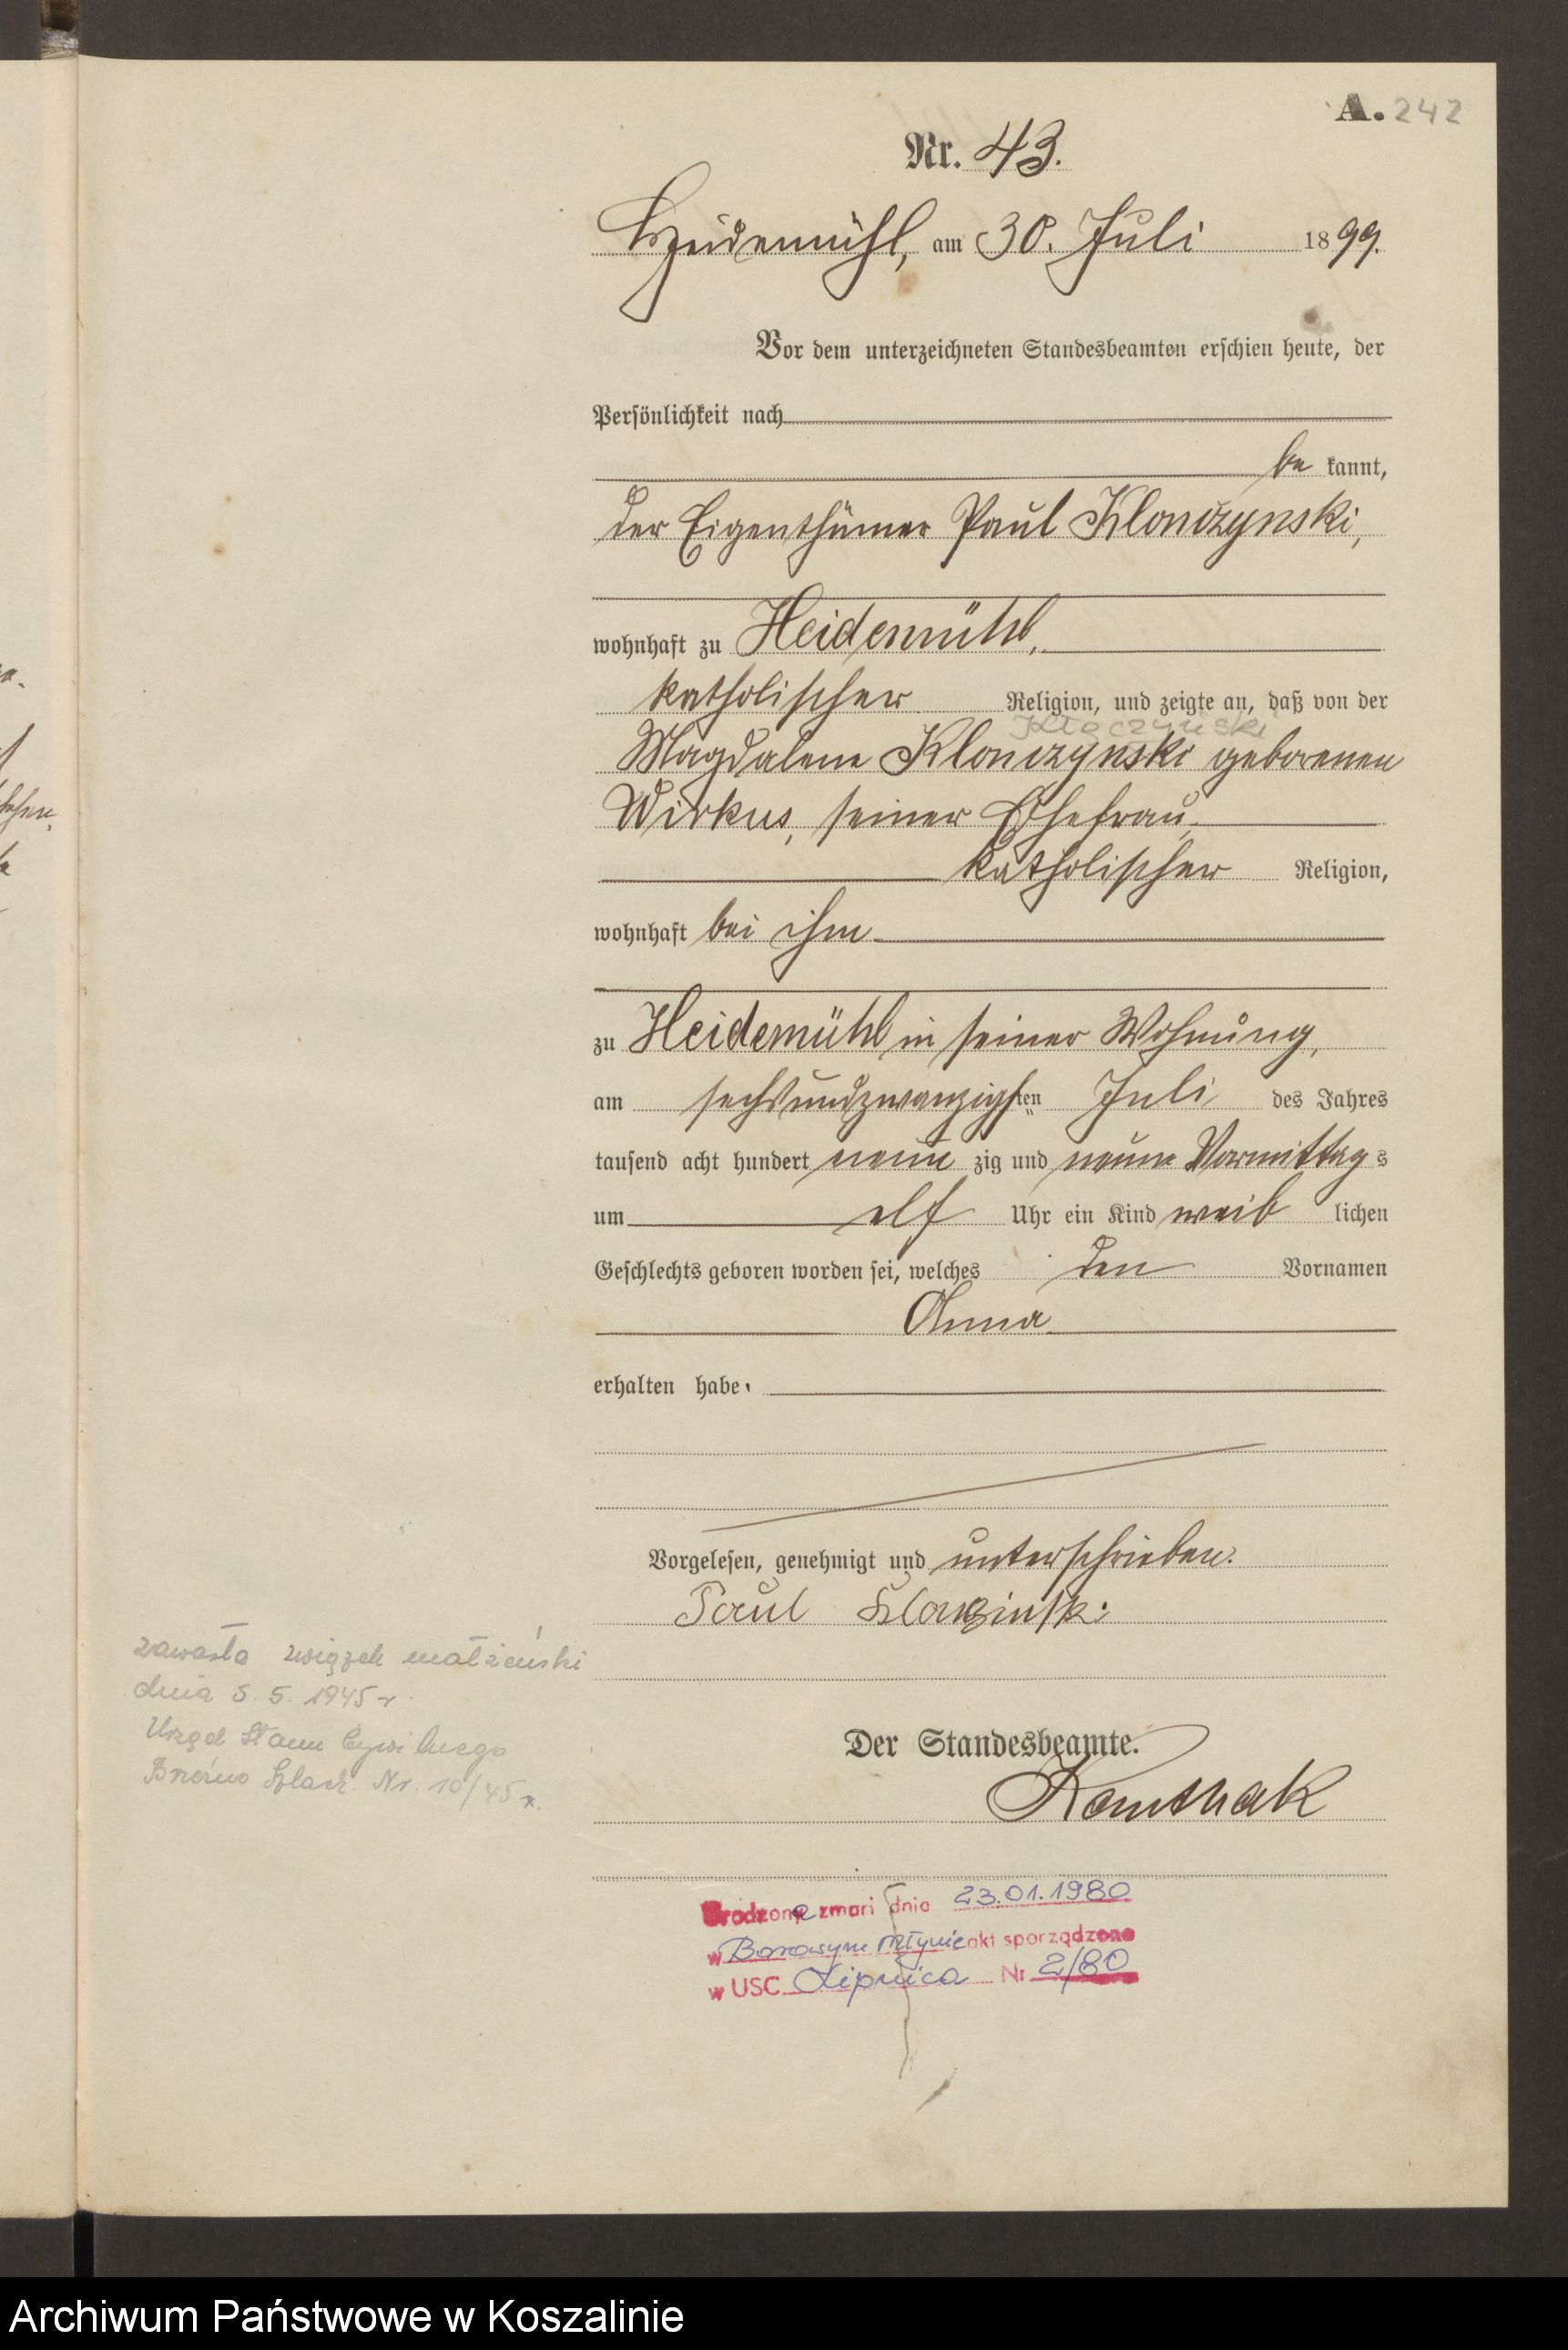 A. 242
Nr. 43.
Heidemühl, am 30. Juli 1899.
Vor dem unterzeichneten Standesbeamten erschien heute, der
Persönlichkeit nach
be kannt,
der Eigenthümer Paul Klonczynski,
wohnhaft zu Heidemühl,
katholischer Religion, und zeigte an, daß von der
Magdalena Klonczynski geborenen
Wirkus, seiner Ehefrau,
katholischer Religion,
wohnhaft bei ihm
zu Heidemühl in seiner Wohnung,
am sechsundzwanzigsten Juli des Jahres
tausend acht hundert neun zig und neun Vormittags
um elf Uhr ein Kind weib lichen
Geschlechts geboren worden sei, welches den Vornamen
Anna
erhalten habe.
Vorgelesen, genehmigt und unterschrieben.
Paul
zawarła związek małżeński
dnia 5. 5. 1945 r.
Urząd Stanu Cywilnego
Brzeźno Szlach. Nr. 10/45 r.
Der Standesbeamte.
Urodzona zmarł dnia 23.01.1980
w Borowym Młynie akt sporządzono
w USC Lipnica Nr 2/80
Archiwum Państwowe w Koszalinie